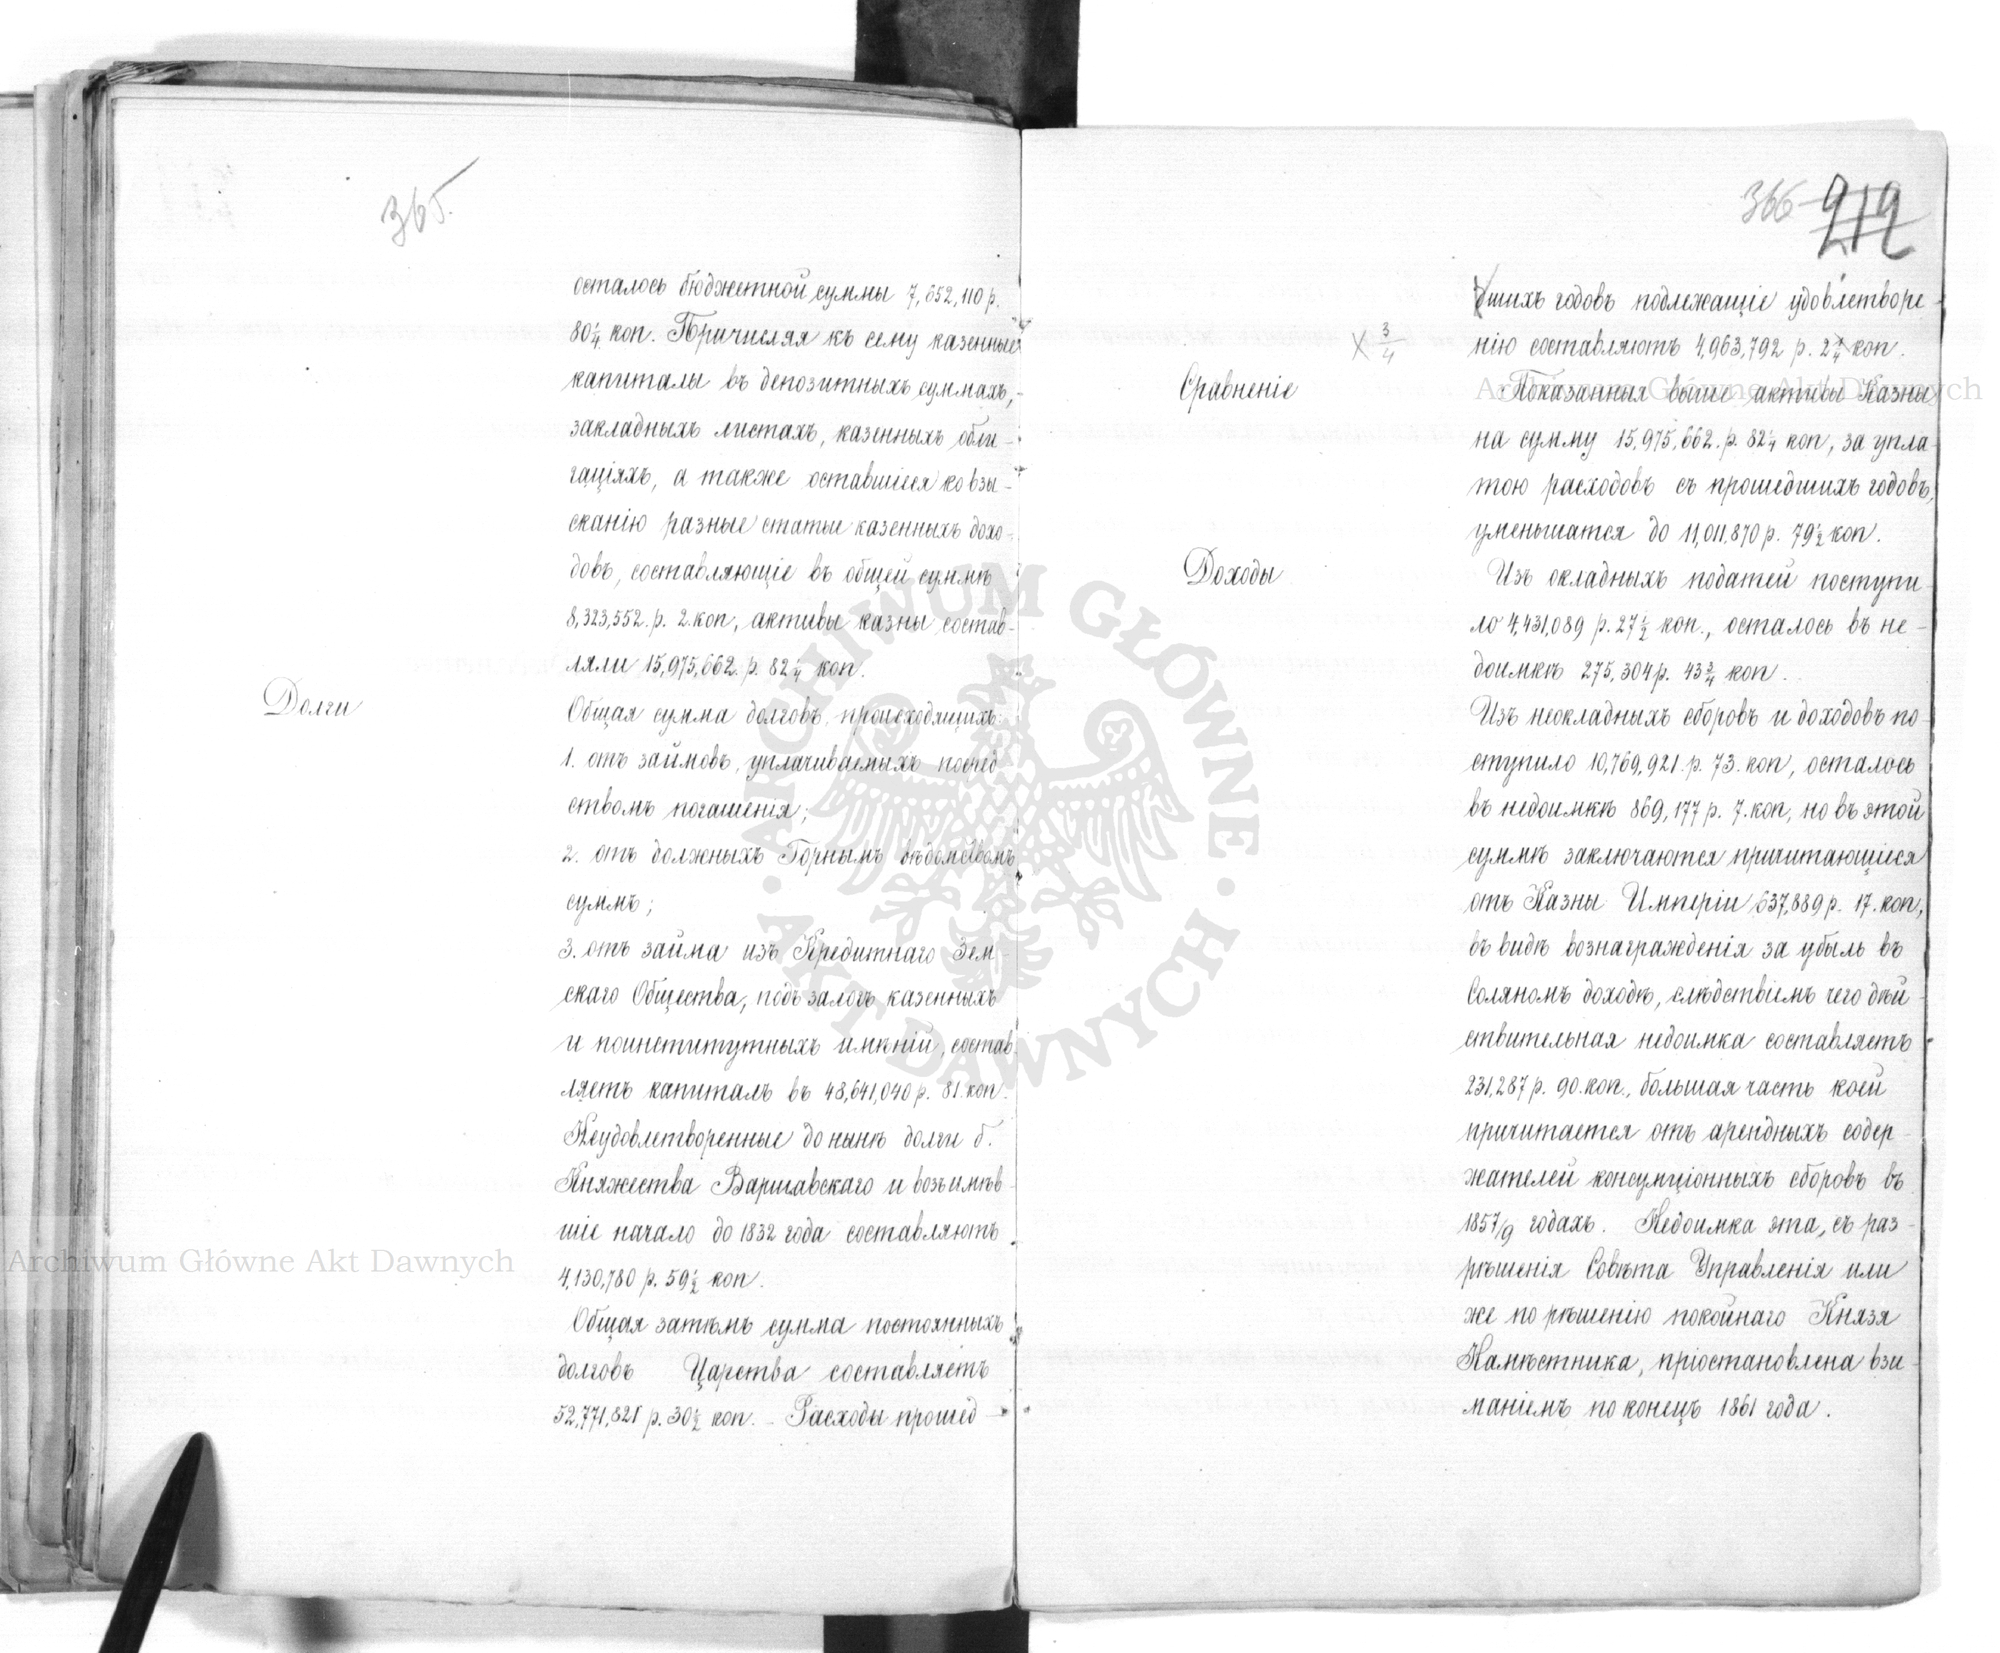 365.
осталось бюджетной суммы 7,652,110 р.
80 1/4 коп. Причисляя къ сему казенные
капиталы въ депозитныхъ суммахъ,
закладныхъ листахъ, казенныхъ обли-
гаціяхъ, а также оставшіеся ко взы-
сканію разные статьи казенныхъ дохо-
довъ, составляющіе въ общей суммѣ
8,323,552. р. 2. коп, активы казны состав-
ляли 15,975,662. р. 82 1/4 коп.
Долги
Общая сумма долговъ, происходящихъ:
1. отъ займовъ, уплачиваемыхъ посред
ствомъ погашенія;
2. отъ должныхъ Горнымъ вѣдомствомъ
суммъ;
3. отъ займа изъ Кредитнаго Зем-
скаго Общества, подъ залогъ казенныхъ
и поинститутныхъ имѣній, состав-
ляетъ капиталъ въ 48,641,040 р. 81 коп.
Неудовлетворенные до нынѣ долги б.
Княжества Варшавскаго и возъимѣв-
шіе начало до 1832 года составляютъ
4,130,780 р. 59 1/2 коп.
Общая затѣмъ сумма постоянныхъ
долговъ Царства составляетъ
52,771,821 р. 30 1/2 коп. - Расходы прошед-
366 212
шихъ годовъ подлежащіе удовлетворе-
х 3/4
нію составляютъ 4,963,792 р. 2 коп.
Сравненіе
Показанныя выше активы Казны
на сумму 15,975,662. р. 82 1/4 коп, за упла-
тою расходовъ съ прошедшихъ годовъ,
уменьшатся до 11,011,870 р. 79 1/2 коп.
Доходы
Изъ окладныхъ податей поступи-
ло 4,431,089 р. 27 1/2 коп., осталось въ не-
доимкѣ 275,304 р. 43 3/4 коп.
Изъ неокладныхъ сборовъ и доходовъ по-
ступило 10,769,921. р. 73. коп, осталось
въ недоимкѣ 869,177 р. 7. коп, но въ этой
суммѣ заключаются причитающіеся
отъ Казны Имперіи 637,889 р. 17. коп,
въ видѣ вознагражденія за убыль въ
Соляномъ доходѣ, слѣдствіемъ чего дѣй-
ствительная недоимка составляетъ
231,287 р. 90. коп., большая часть коей
причитается отъ арендныхъ содер-
жателей консумціонныхъ сборовъ въ
1857/9 годахъ. Недоимка эта, съ раз-
рѣшенія Совѣта Управленія или
же по рѣшенію покойнаго Князя
Намѣстника, пріостановлена взи-
маніемъ по конецъ 1861 года.
Archiwum Główne Akt Dawnych
Archiwum Główne Akt Dawnych
ARCHIWUM GŁÓWNE · AKT DAWNYCH ·